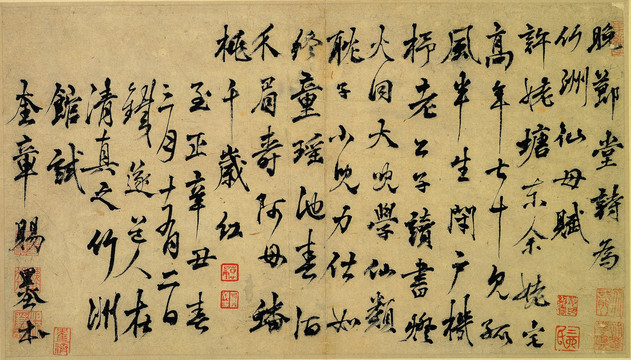 晚節堂詩為
竹洲仙母賦
許姥塘東余姥宅
高年七十見孤
風半生閉戶機
杼老公子讀書燈
火同大兒學仙類
耽子小兒力仕如
終童瑤池春酒
眉壽阿母蟠
桃千歲紅
至正辛丑春
三月十二日
鐵篴道人在
清真之竹洲
館試
奎章賜墨